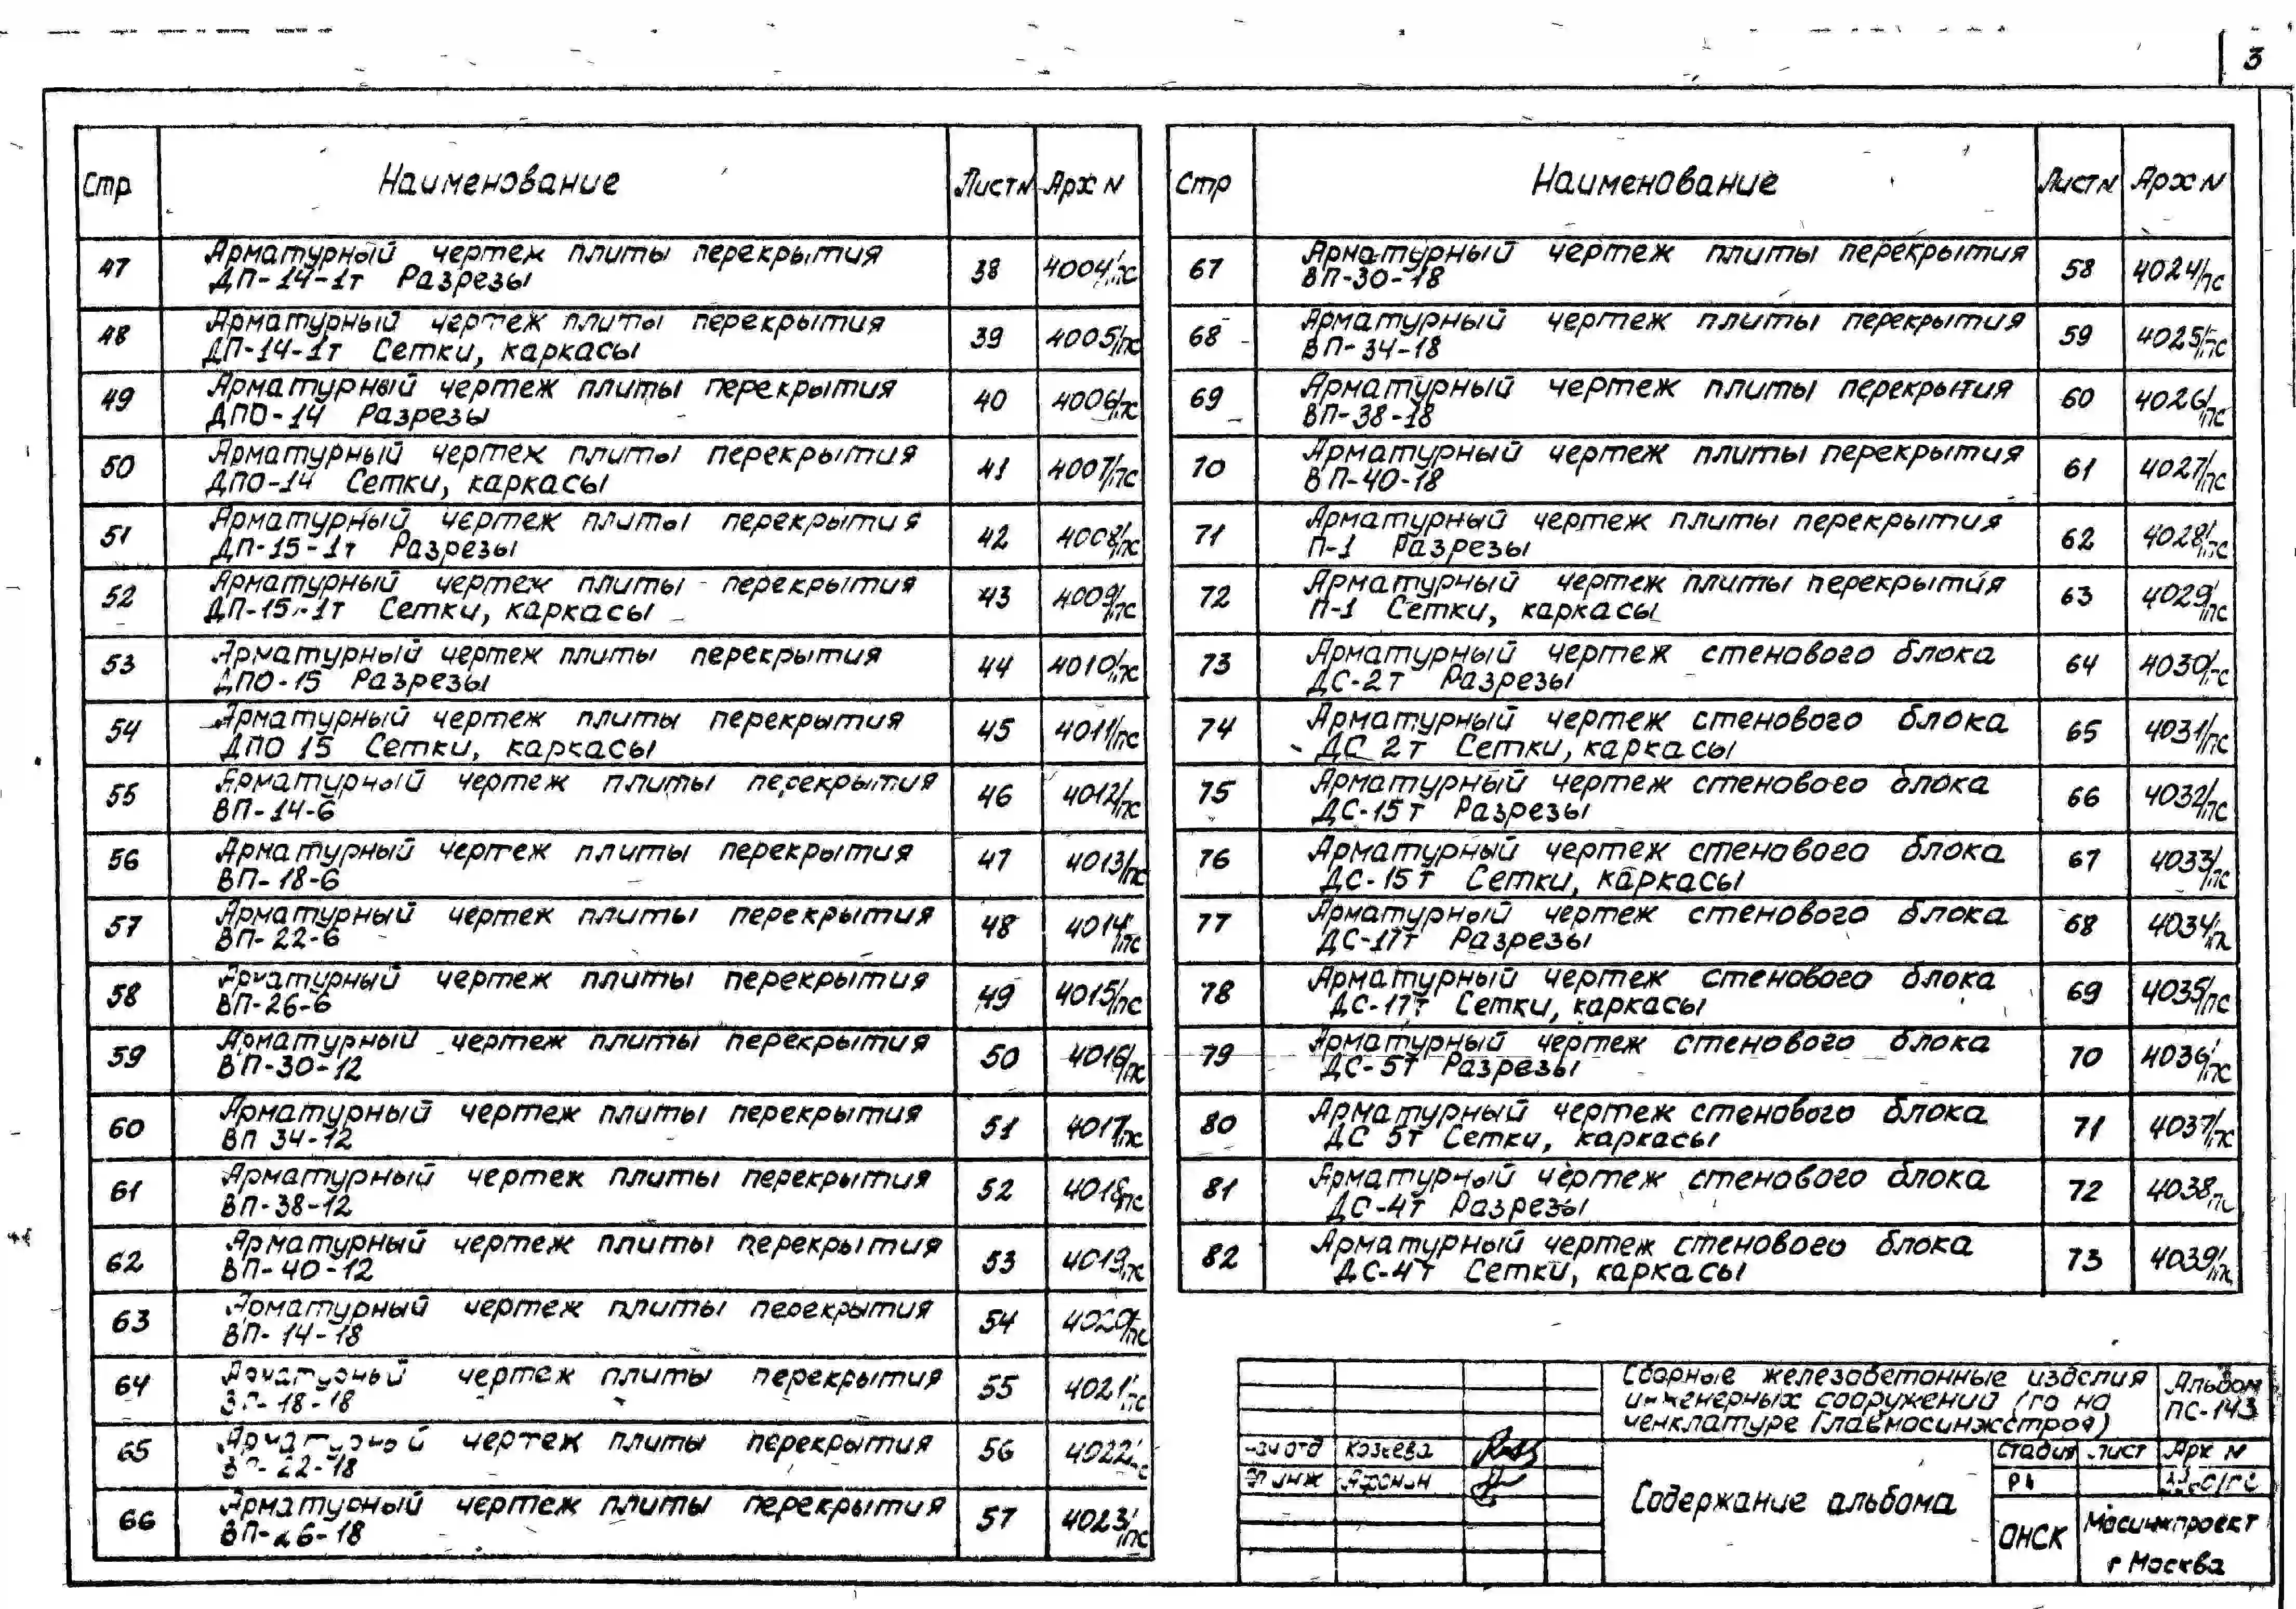 3
Стр Наименование Лист N Арх N
47 Арматурный чертеж плиты перекрытия 38 4004/пс
ДП-14-1т Разрезы
48 Арматурный чертеж плиты перекрытия 39 4005/пс
ДП-14-1т Сетки, каркасы
49 Арматурный чертеж плиты перекрытия 40 4006/пс
ДПО-14 Разрезы
50 Арматурный чертеж плиты перекрытия 41 4007/пс
ДПО-14 Сетки, каркасы
51 Арматурный чертеж плиты перекрытия 42 4008/пс
ДП-15-1т Разрезы
52 Арматурный чертеж плиты перекрытия 43 4009/пс
ДП-15-1т Сетки, каркасы
53 Арматурный чертеж плиты перекрытия 44 4010/пс
ДПО-15 Разрезы
54 Арматурный чертеж плиты перекрытия 45 4011/пс
ДПО 15 Сетки, каркасы
55 Арматурный чертеж плиты перекрытия 46 4012/пс
ВП-14-6
56 Арматурный чертеж плиты перекрытия 47 4013/пс
ВП-18-6
57 Арматурный чертеж плиты перекрытия 48 4014/пс
ВП-22-6
58 Арматурный чертеж плиты перекрытия 49 4015/пс
ВП-26-6
59 Арматурный чертеж плиты перекрытия 50 4016/пс
ВП-30-12
60 Арматурный чертеж плиты перекрытия 51 4017/пс
ВП 34-12
61 Арматурный чертеж плиты перекрытия 52 4018/пс
ВП-38-12
62 Арматурный чертеж плиты перекрытия 53 4019/пс
ВП-40-12
63 Арматурный чертеж плиты перекрытия 54 4020/пс
ВП-14-18
64 Арматурный чертеж плиты перекрытия 55 4021/пс
ВП-18-18
65 Арматурный чертеж плиты перекрытия 56 4022/пс
ВП-22-18
66 Арматурный чертеж плиты перекрытия 57 4023/пс
ВП-26-18
Стр Наименование Лист N Арх N
67 Арматурный чертеж плиты перекрытия 58 4024/пс
ВП-30-18
68 Арматурный чертеж плиты перекрытия 59 4025/пс
ВП-34-18
69 Арматурный чертеж плиты перекрытия 60 4026/пс
ВП-38-18
70 Арматурный чертеж плиты перекрытия 61 4027/пс
ВП-40-18
71 Арматурный чертеж плиты перекрытия 62 4028/пс
П-1 Разрезы
72 Арматурный чертеж плиты перекрытия 63 4029/пс
П-1 Сетки, каркасы
73 Арматурный чертеж стенового блока 64 4030/пс
ДС-2т Разрезы
74 Арматурный чертеж стенового блока 65 4031/пс
ДС 2т Сетки, каркасы
75 Арматурный чертеж стенового блока 66 4032/пс
ДС-15т Разрезы
76 Арматурный чертеж стенового блока 67 4033/пс
ДС-15т Сетки, каркасы
77 Арматурный чертеж стенового блока 68 4034/пс
ДС-17т Разрезы
78 Арматурный чертеж стенового блока 69 4035/пс
ДС-17т Сетки, каркасы
79 Арматурный чертеж стенового блока 70 4036/пс
ДС-5т Разрезы
80 Арматурный чертеж стенового блока 71 4037/пс
ДС 5т Сетки, каркасы
81 Арматурный чертеж стенового блока 72 4038/пс
ДС-4т Разрезы
82 Арматурный чертеж стенового блока 73 4039/пс
ДС-4т Сетки, каркасы
Сборные железобетонные изделия
инженерных сооружений (по но
менклатуре Главмосинжстроя)
Альбом
ПС-143
Нач отд Козеева
Гл инж Афонин
Содержание альбома
Стадия Лист Арх N
РЧ
ОНСК
Мосинжпроект
г Москва